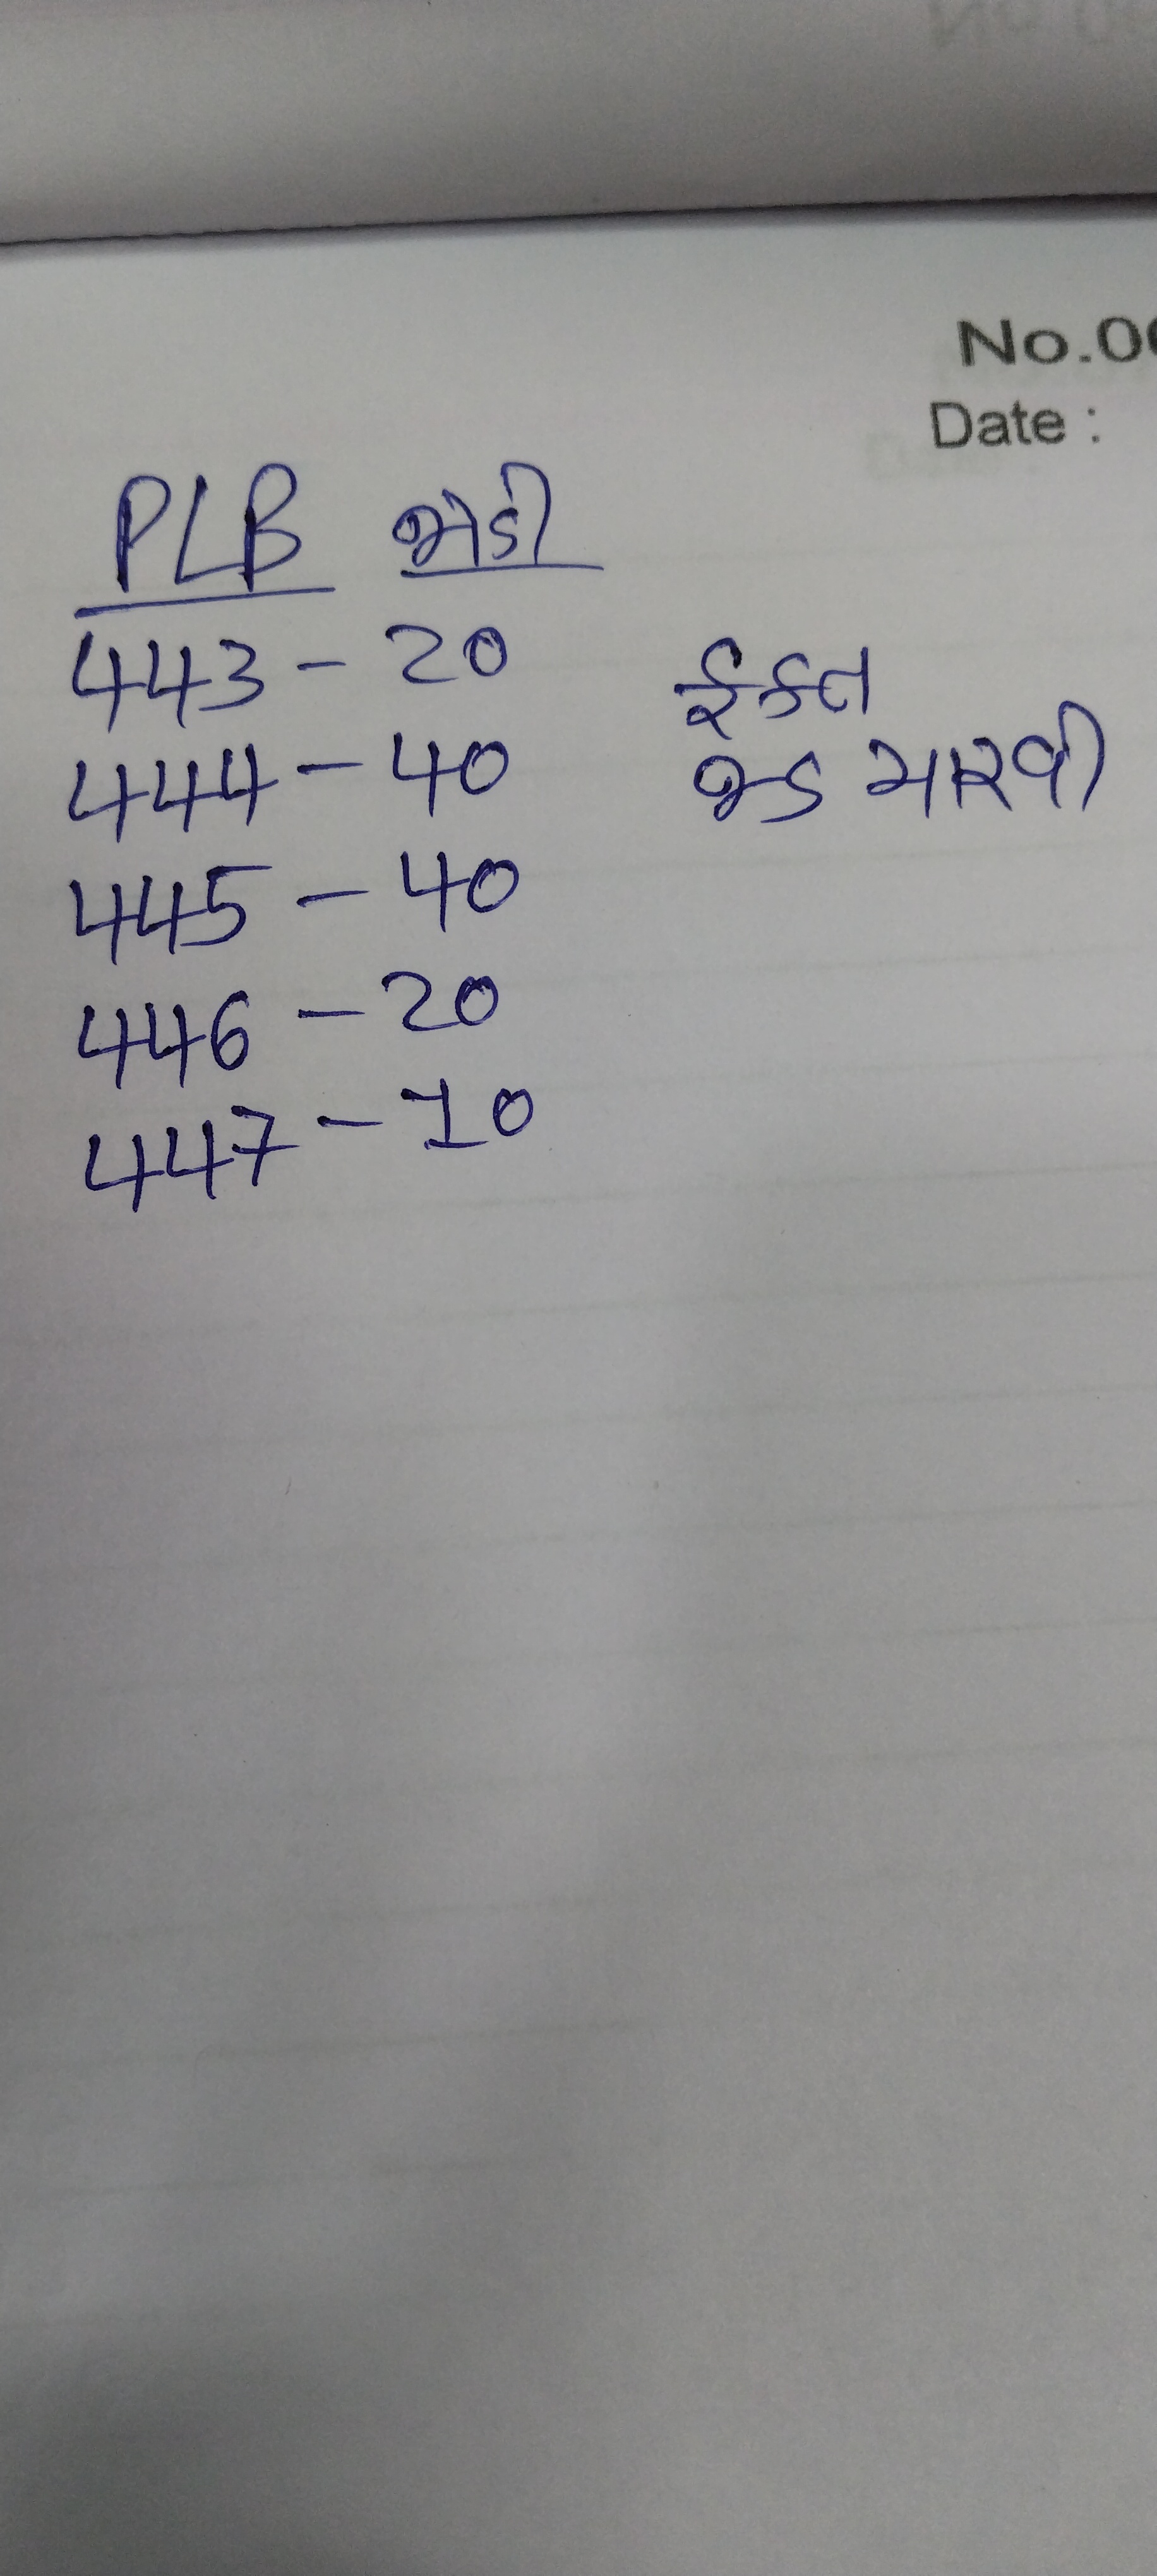 No.0
Date :
PLB જોડી
443 - 20
444 - 40
445 - 40
446 - 20
447 - 10
ફક્ત
જડ મારવી